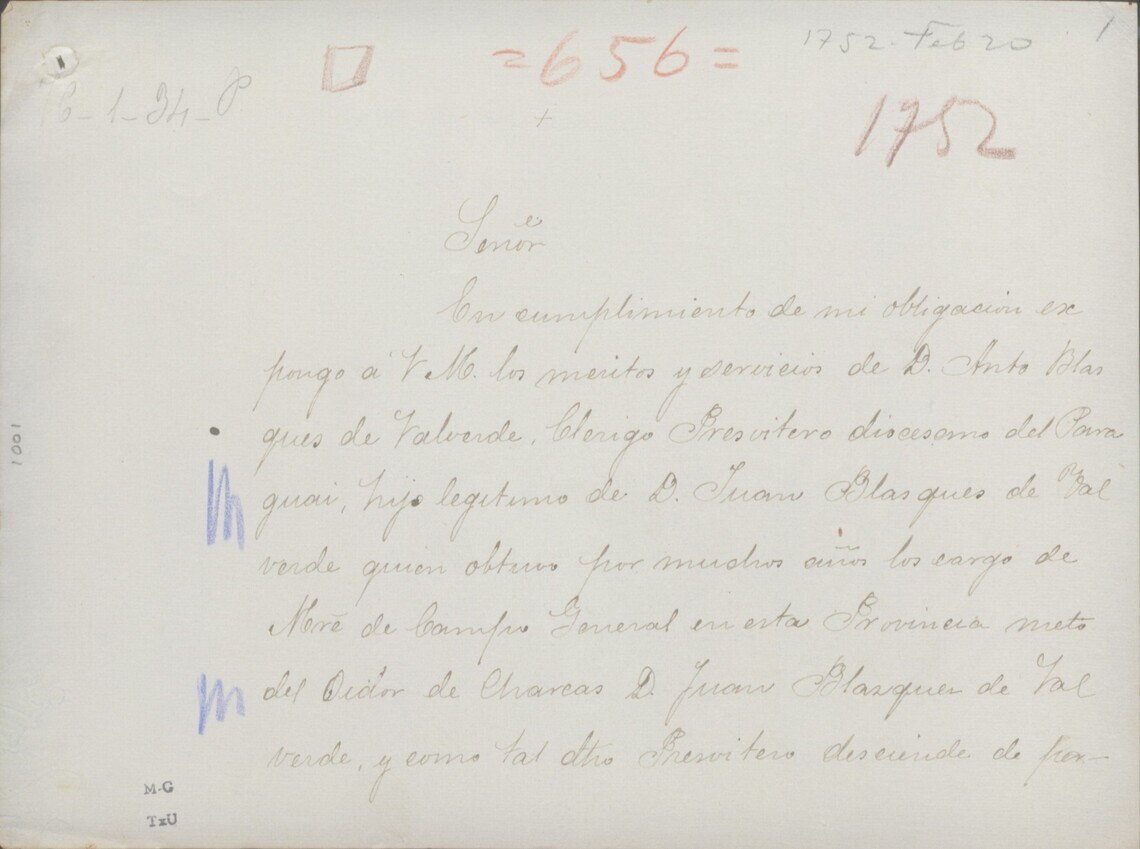 = 656 =
1752 - Feb 20
1
1-34-P
+
1752
Señor
En cumplimiento de mi obligación ex
pongo á V M. los meritos y servicios de D. Anto Blas
ques de Valverde, Clerigo Presvitero diocesano del Para
guai, hijo legitimo de D. Juan Blasques de Val
verde quien obtuvo por muchos años los cargo de
Mrē de Campo General en esta Provincia nieto
del Oidor de Charcas D. Juan Blazquez de Val
verde, y como tal dho Presvitero desciende de per-
1001
M-G
TxU